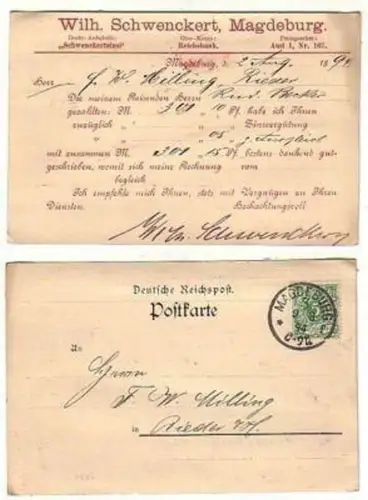 Wilh. Schwenckert, Magdeburg.
Giro-Konto:
"Schwenckerteins" Reichsbank. Amt 1, Nr. 167.
Magdeburg, d. 2 Aug. 189
Herr F. W. Milling Rieder
Die meinem Reisenden Herrn Rud.
gezahlten: M. 301 10 Pf. habe ich Ihnen
zuzüglich " " Zinsvergütung
" " 05 "
mit zusammen M. 301 15 Pf. bestens dankend gut-
geschrieben, womit sich meine Rechnung vom
beglich
Ich empfehle mich Ihnen, stets mit Vergnügen zu Ihren
Diensten. Hochachtungsvoll
Wilh. Schwenckert
Deutsche Reichspost.
Postkarte
An
Herrn
F. W. Milling
in Rieder
MAGDEBURG
94